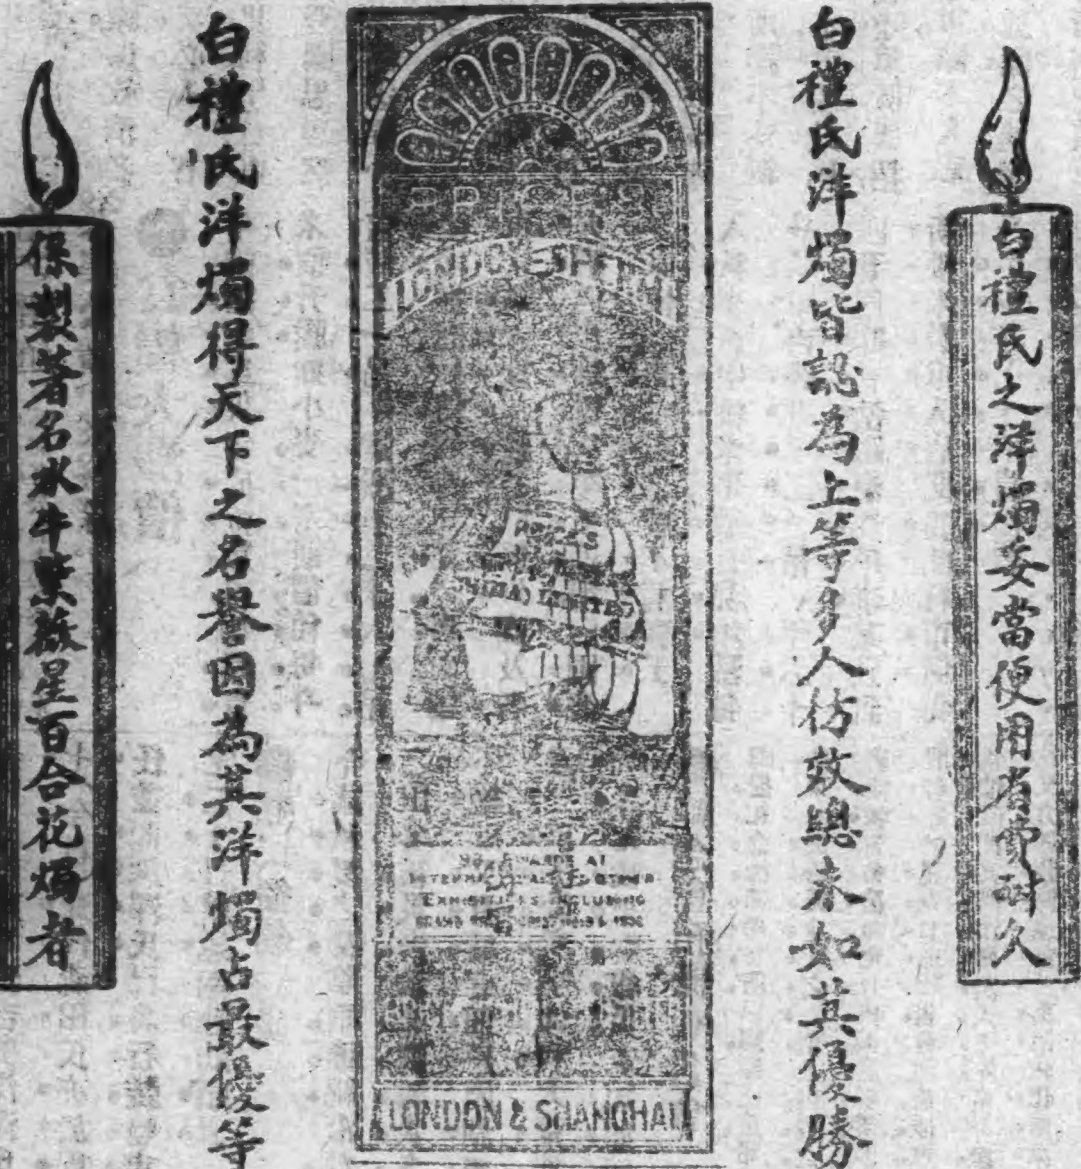 白禮氏之洋燭妥當便用省費耐久
白禮氏洋燭皆認為上等多人彷效總未如其優勝
PRICE'S
LONDON
PRICE'S
(CHINA) LIMITED
AWARDS AT
INTERNATIONAL & OTHER
EXHIBITIONS INCLUDING
GRAND
LONDON & SHANGHAI
白禮氏洋燭得天下之名譽因為其洋燭占最優等
保製著名水牛紫薇星百合花燭者